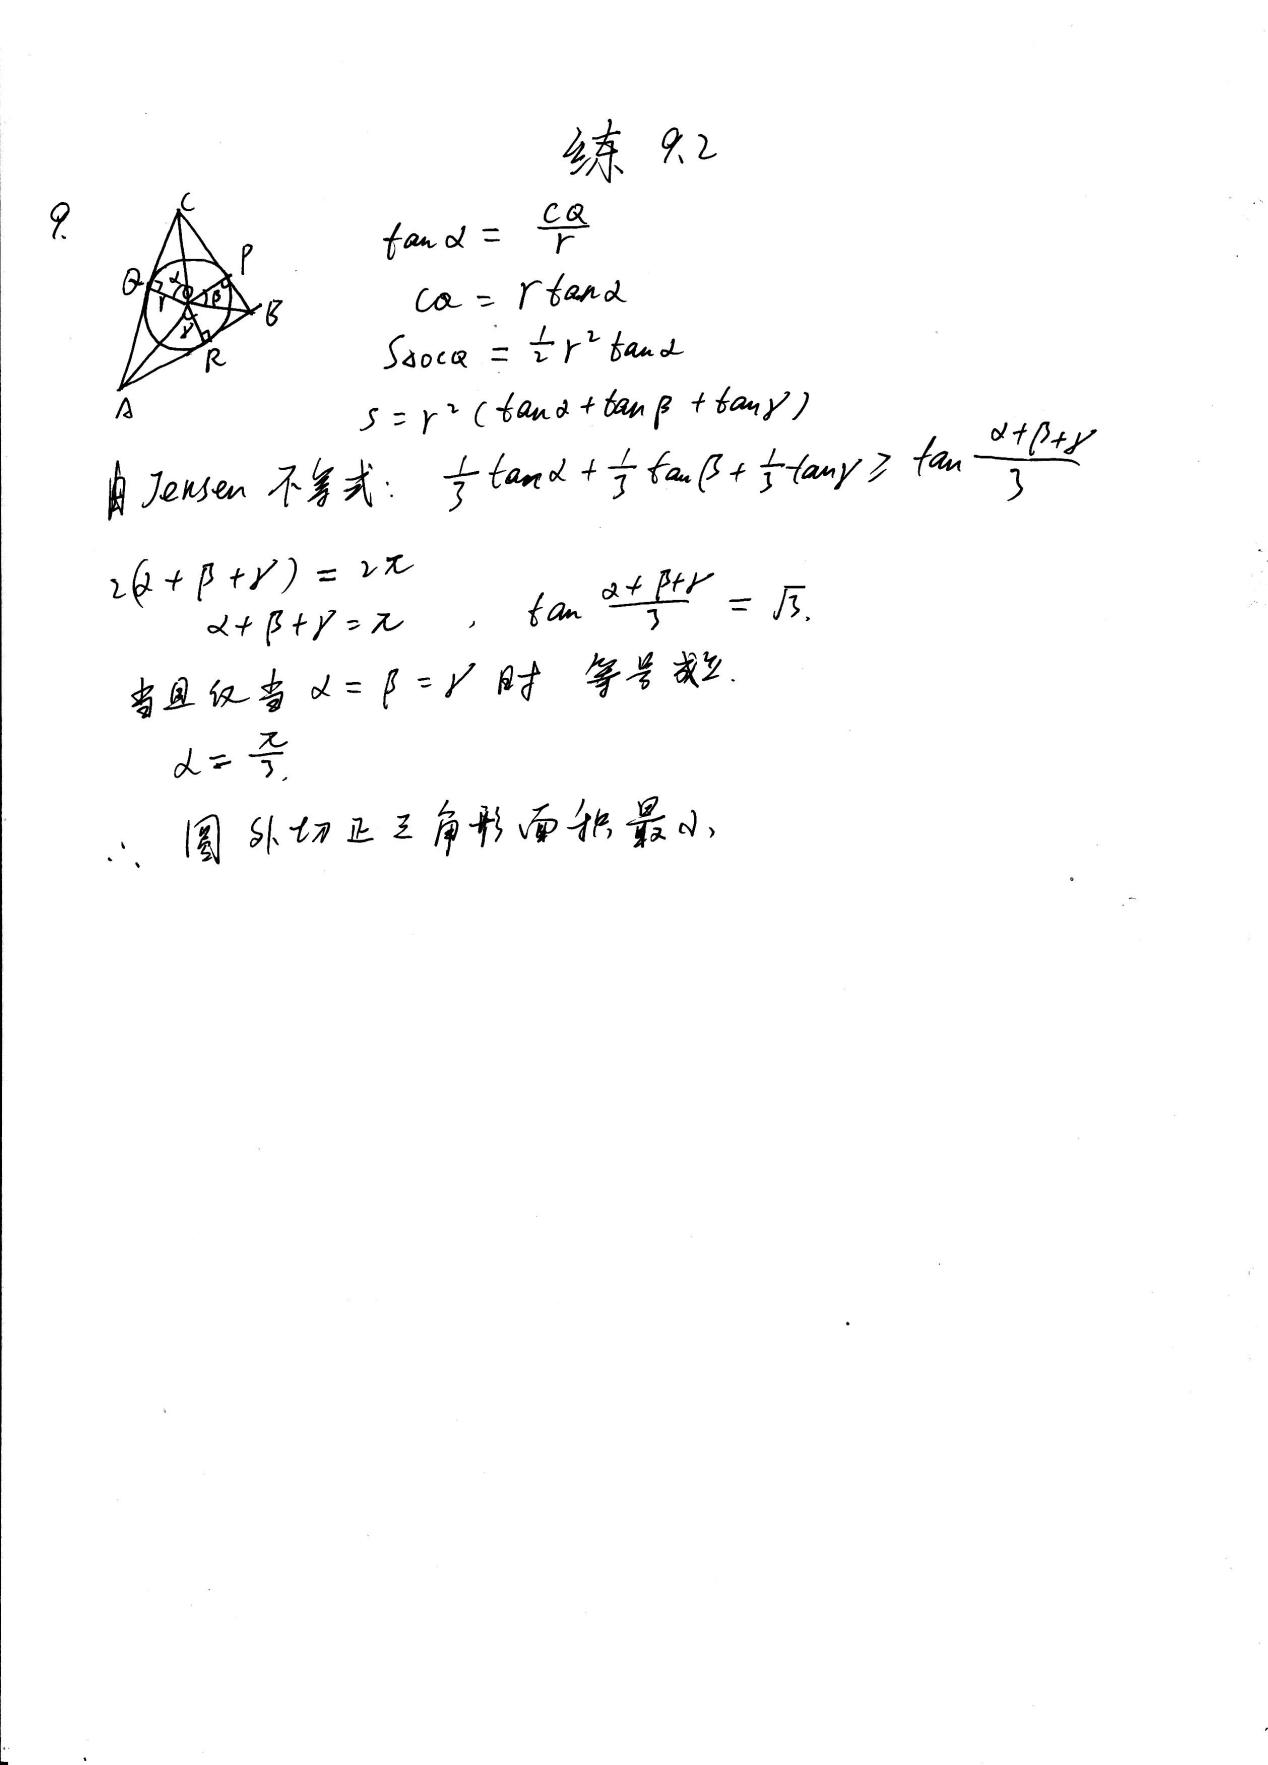 练 9.2
9.
C
Q α P
r β B
γ
R
A
tanα = CQ/r
CQ = r tanα
S△OCQ = 1/2 r² tanα
S = r² (tanα + tanβ + tanγ)
由 Jensen 不等式: 1/3 tanα + 1/3 tanβ + 1/3 tanγ ≥ tan (α+β+γ)/3
2(α + β + γ) = 2π
α + β + γ = π , tan (α+β+γ)/3 = √3.
当且仅当 α = β = γ 时 等号成立.
α = π/3.
∴ 圆外切正三角形面积最小.